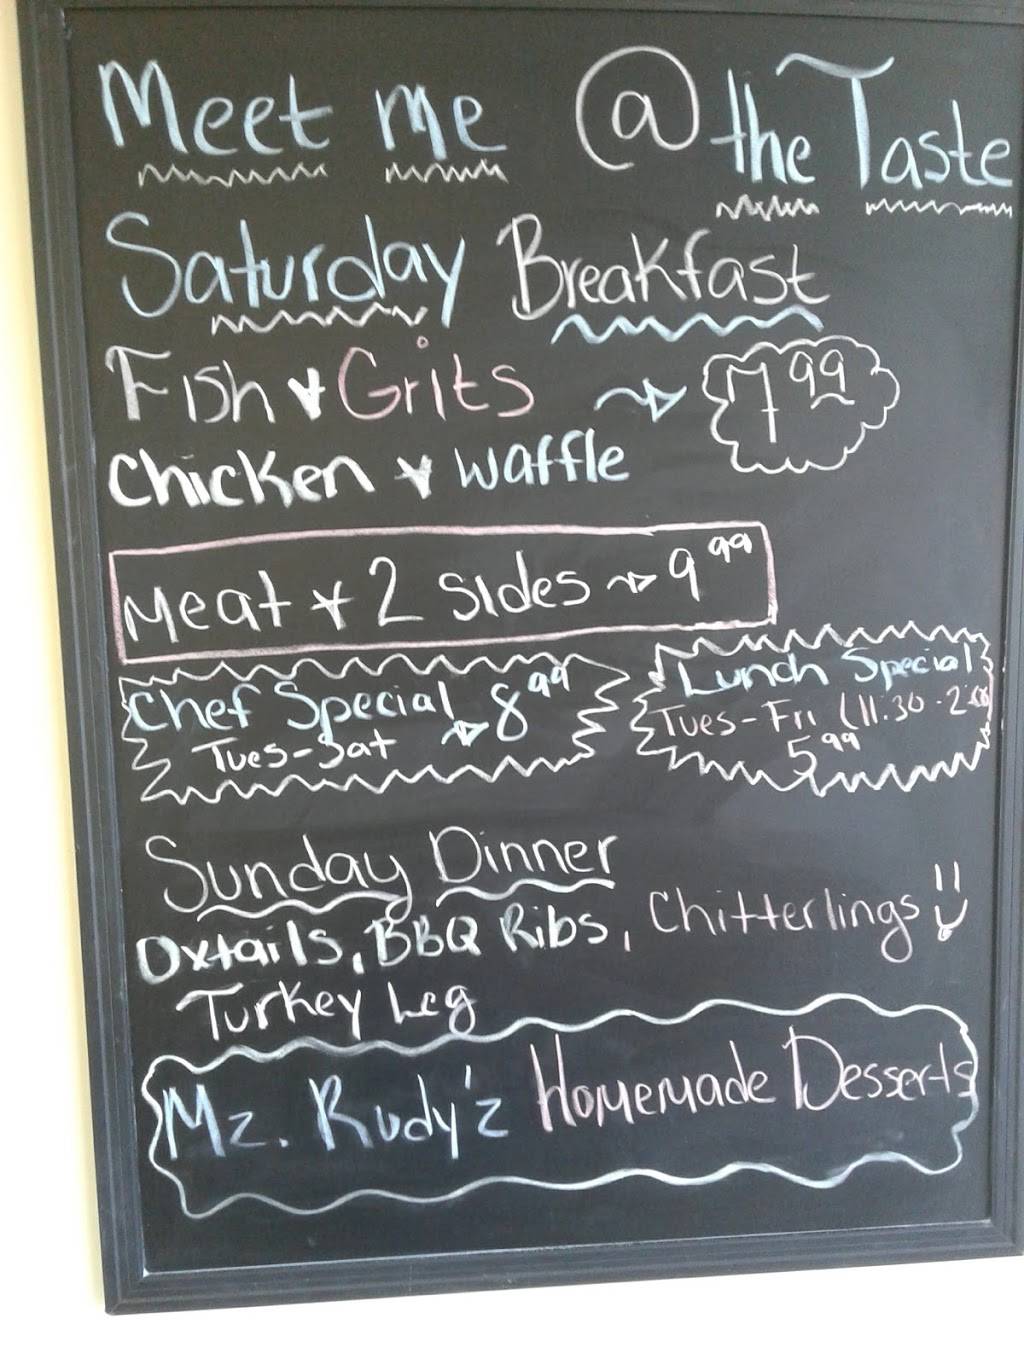 Meet me @ the Taste
Saturday Breakfast
Fish & Grits 7.99
Chicken & Waffle
Meat & 2 Sides 9.99
Chef Special 8.99
Tues-Sat
Lunch Special
Tues-Fri (11:30-2:00)
5.99
Sunday Dinner
Oxtails, BBQ Ribs, Chitterlings
Turkey Leg
Mz. Rudy'z Homemade Desserts